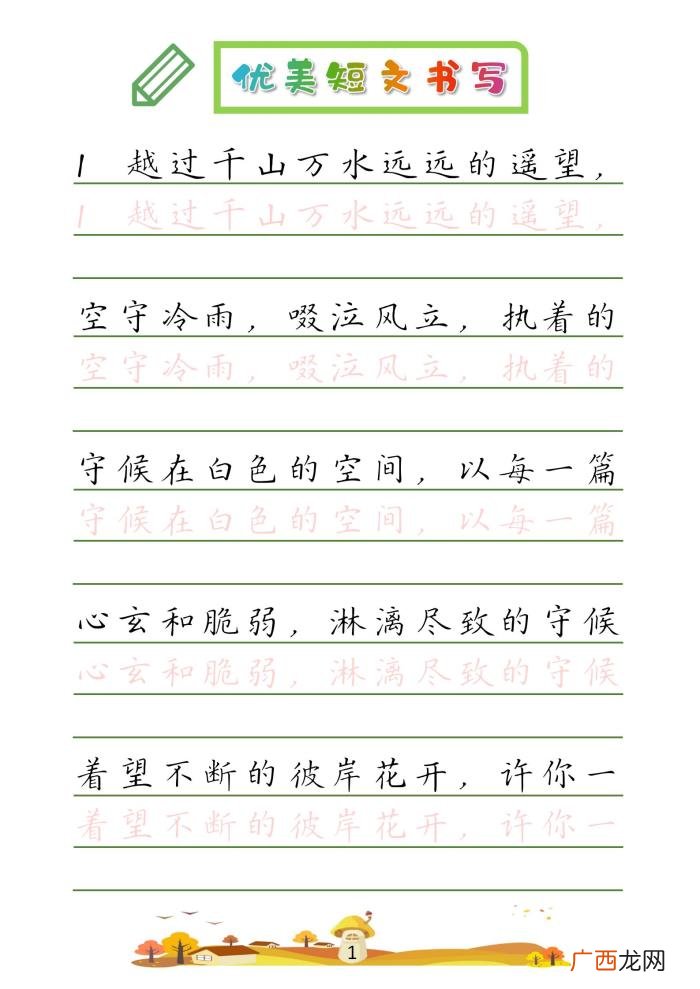 优美短文书写
1 越过千山万水远远的遥望，
1 越过千山万水远远的遥望，
空守冷雨，啜泣风立，执着的
空守冷雨，啜泣风立，执着的
守候在白色的空间，以每一篇
守候在白色的空间，以每一篇
心玄和脆弱，淋漓尽致的守候
心玄和脆弱，淋漓尽致的守候
着望不断的彼岸花开，许你一
着望不断的彼岸花开，许你一
1
广西龙网